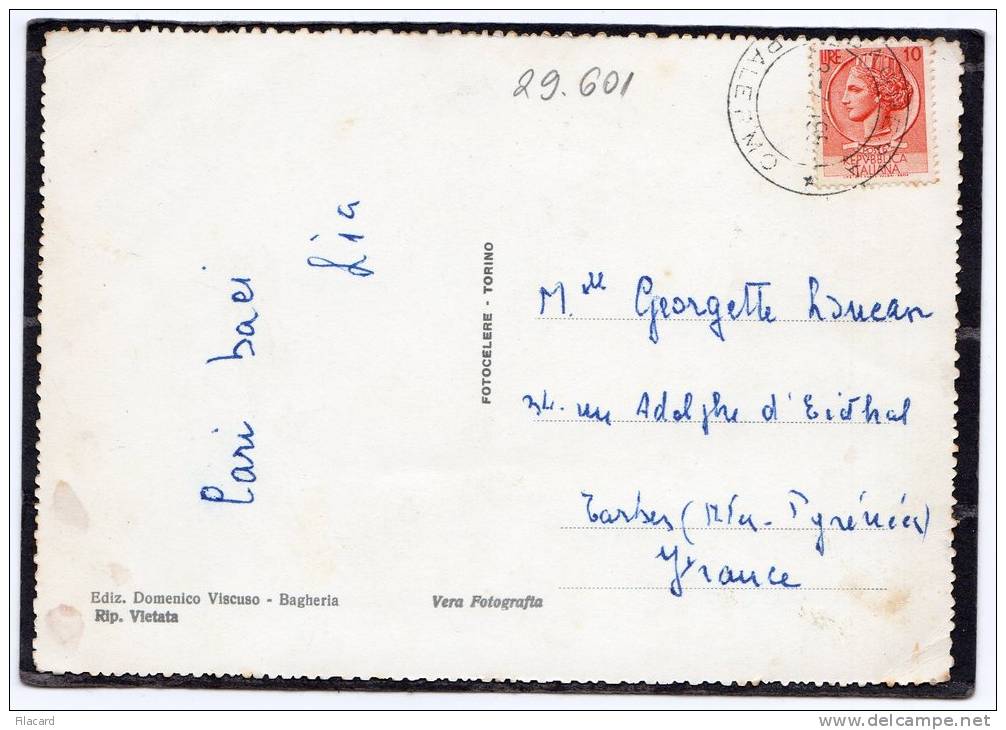 29.601
LIRE 10
REPVBBLICA
ITALIANA
PALERMO
Cari baci
Lia
FOTOCELERE - TORINO
Mlle Georgette
34. rue Adolphe d'Eicthal
Tarbes (Htes - Pyrénées)
France
Ediz. Domenico Viscuso - Bagheria
Rip. Vietata
Vera Fotografia
Filacard
www.delcampe.net